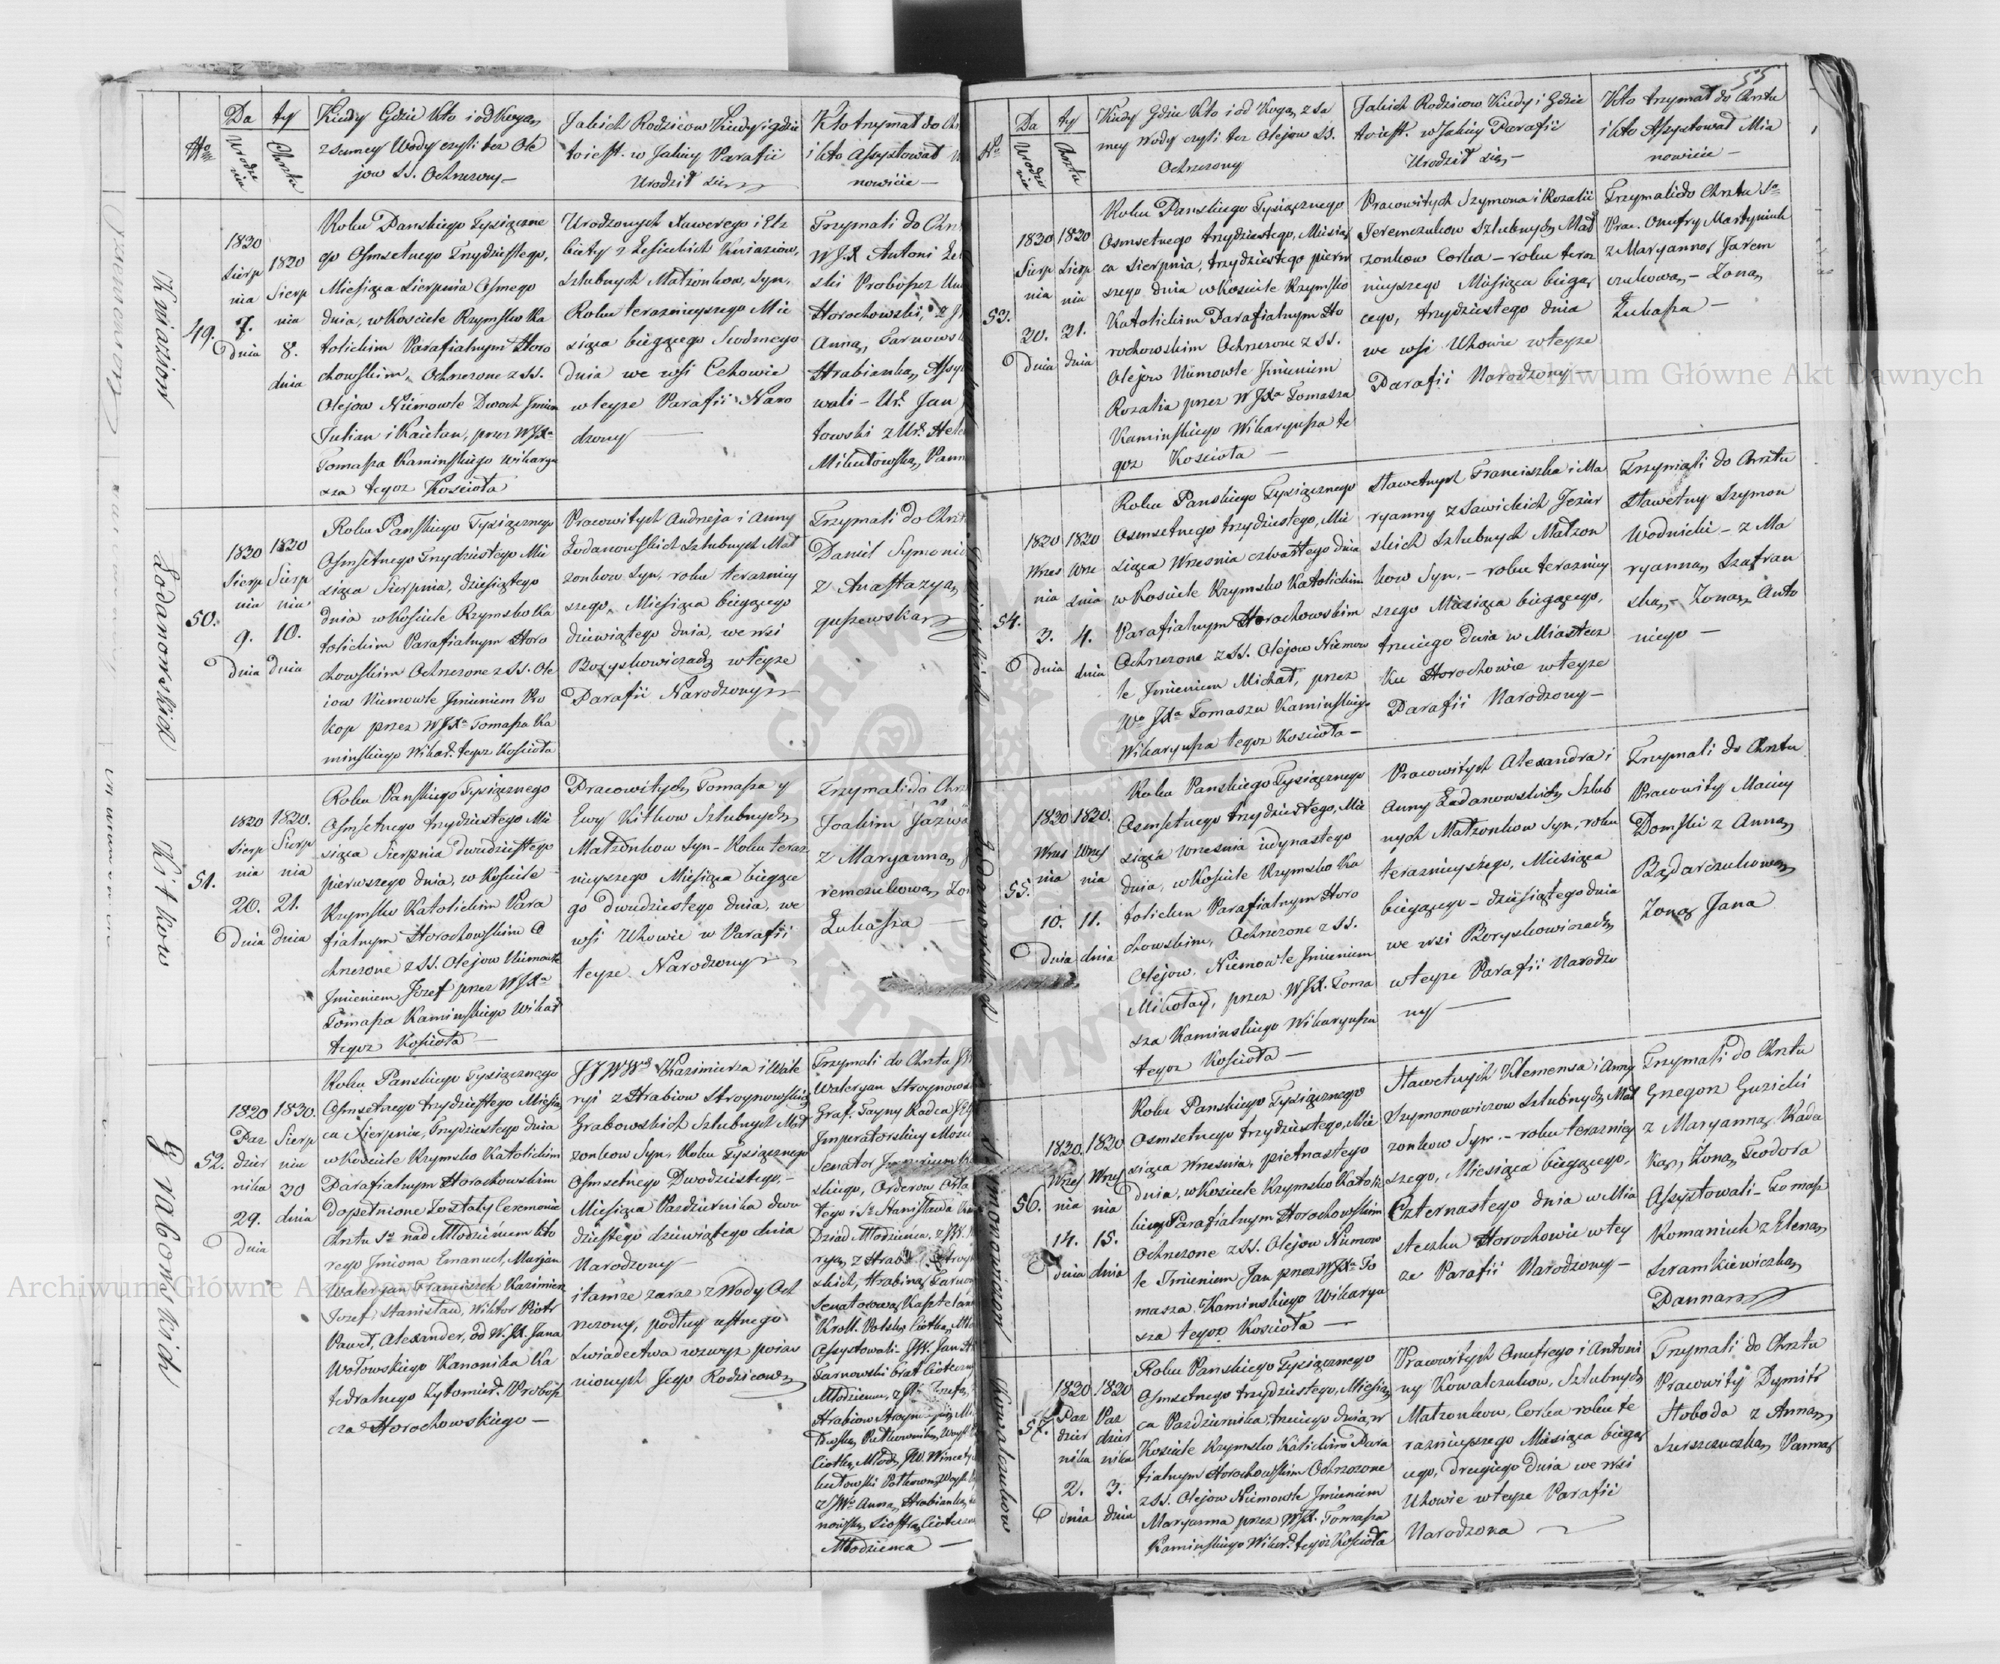 55
No
Da
ty
Urodze
nia
Chrztu
Kiedy Gdzie Kto i od Kogo,
z samey Wody czyli też Ole
jow SS. Ochrzczony —
Jakich Rodzicow Kiedy i gdzie
to iest. w Jakiey Parafii
Urodził się
Kto trzymał do Ch
i kto Assystował
nowicie —
Kniaziow
49.
1830
Sierp
nia
7.
Dnia
1830
Sierp
nia
8.
dnia
Roku Panskiego Tysiączne
go Osmsetnego Trzydziestego,
Miesiąca Sierpnia Osmego
dnia, w Kosciele Rzymsko Ka
tolickim Parafialnym Horo
chowskim, Ochrzczone z SS.
Olejow Niemowle Dwoch Jmion
Julian i Kaietan, przez WJXa
Tomasza Kaminskiego Wikaryu
sza tegoz Kosciola
Urodzonych Xawerego i Elz
biety z Lesieckich Kniaziow,
Szlubnych Małzonkow Syn,
Roku teraznieyszego Mie
siąca bieżącego Siodmego
Dnia we wsi Cehowie
w teyze Parafii Naro
dzony —
Trzymali do Chr
WJX Antoni
ski Probosz
Horochowski,
Anną Tarnows
Hrabianką, Assy
wali — Ur. Jan
towski z Ur. Hele
Mikutowską, Pann
Lodanowskich
50.
1830
Sierp
nia
9.
Dnia
1830
Sierp
nia
10.
Dnia
Roku Panskiego Tysiącznego
Osmsetnego Trzydziestego Mie
siąca Sierpnia, dziesiątego
dnia w Kosciele Rzymsko Ka
tolickim Parafialnym Horo
chowskim Ochrzczone z SS. Ole
iow Niemowle Jmieniem Pro
kop przez WJXa Tomasza Ka
minskiego Wikar. tegoz Kosciola
Pracowitych Andrzeja i Anny
Lodanowskich Szlubnych Mał
zonkow Syn, roku terazniey
szego, Miesiąca bieżącego
dziewiątego dnia, we wsi
Boryskowiczach w teyze
Parafii Narodzony
Trzymali do Chrzt
Daniel Symonie
z Anastazyą
guszewską
Kitkow
51.
1830
Sierp
nia
20.
Dnia
1830.
Sierp
nia
21.
Dnia
Roku Panskiego Tysiącznego
Osmsetnego trzydziestego Mie
siąca Sierpnia dwudziestego
pierwszego dnia, w Kosciele
Rzymsko Katolickim Para
fialnym Horochowskim O
chrzczone z SS. Olejow Niemowle
Jmieniem Jozef przez WJXa
Tomasza Kaminskiego Wikar
tegoz Kosciola —
Pracowitych Tomasza y
Ewy Kitkow Szlubnych
Małzonkow Syn — Roku teraz
nieyszego Miesiąca bieżące
go dwudziestego dnia, we
wsi Uhowie w Parafii
teyze Narodzony
Trzymali do Chrz
Joachim
z Maryanną
remczukową, Żo
Łukasza —
Grabowskich
52.
1820
Paz
dzier
nika
29.
Dnia
1830.
Sierp
nia
30
dnia
Roku Panskiego Tysiącznego
Osmsetnego trzydziestego Miesią
ca Sierpnia, trzydziestego dnia
w Kosciele Rzymsko Katolickim
Parafialnym Horochowskim
dopełnione Zostały Ceremonie
Chrztu Sgo nad Młodzieńcem kto
rego Jmiona Emanuel, Maryan
Waleryan Franciszek Kazimierz
Jozef Stanisław, Wiktor Piotr
Paweł, Alexander, od W. JX. Jana
Wołowskiego Kanonika Ka
tedralnego Zytomier. Probosz
cza Horochowskiego —
JJWWch Kazimierza i Wale
ryi z Hrabiow Stroynowskich
Grabowskich Szlubnych Mał
zonkow Syn, Roku Tysiącznego
Osmsetnego Dwodziestego, —
Miesiąca Pazdziernika dwu
dziestego dziewiątego dnia
Narodzony
i tamze zaraz z Wody Och
rzczony, podług ustnego
Swiadectwa wzwyz poiaś
nionych Jego Rodzicow
Trzymali do Chrztu
Waleryan Stroynows
Graf. Tayny Radca
Jmperatorskiey
Senator
skiego, Orderow
tego i S. Stanisława
Dziad Młodzieńca, z
ryą z Hrab. Stroyn
skich, Hrabiną Tarno
Senatorową Kasztelan
Kroll. Polsk. Ciotką
Assystowali — JW. Jan
Tarnowski brat Cioteczny
Młodzieńca, z
Hrabiow Stroyn
Pułkownik
Ciotką Młod. JW. Wincenty
kułowski Połkownik
z JW. Anną Hrabianką
nowską, Siostrą Cioteczną
Młodzieńca —
No
Da
ty
Urodze
nia
Chrztu
Kiedy Gdzie Kto i od Kogo, z Sa
mey Wody czyli tez Olejow SS.
Ochrzczony
Jakich Rodzicow Kiedy i Gdzie
to iest. w Jakiey Parafii
Urodził się —
Kto trzymał do Chrztu
i kto Assystował Mia
nowicie —
53.
1830
Sierp
nia
30.
Dnia
1830
Sierp
nia
31.
dnia
Roku Panskiego Tysiącznego
Osmsetnego trzydziestego, Miesią
ca Sierpnia, trzydziestego pierw
szego dnia w Kosciele Rzymsko
Katolickim Parafialnym Ho
rochowskim Ochrzczone z SS.
Olejow Niemowle Jmieniem
Rozalia przez WJXa Tomasza
Kaminskiego Wikaryusza te
goz Kosciola —
Pracowitych Szymona i Rozalii
Jeremczukow Szlubnych Mał
zonkow Corka — roku teraz
nieyszego Miesiąca bieżą
cego, trzydziestego dnia
we wsi Uhowie w teyze
Parafii Narodzony —
Trzymali do Chrztu Sgo
Prac. Onufry Martyniuk
z Maryanną Jarem
czukową, — Żoną
Łukasza —
54.
1830
Wrześ
nia
3.
dnia
1830
Wrze
śnia
4.
dnia
Roku Panskiego Tysiącznego
Osmsetnego trzydziestego, Mie
siąca Września czwartego dnia
w Kosciele Rzymsko Katolickim
Parafialnym Horochowskim
Ochrzczone z SS. Olejow Niemow
le Jmieniem Michał, przez
Wo JXa Tomasza Kaminskiego
Wikaryusza tegoz Kosciola —
Sławetnych Franciszka i Ma
ryanny z Sawickich Jezier
skich Szlubnych Małzon
kow Syn, — roku teraznieу
szego Miesiąca bieżącego,
trzeciego dnia w Miastecz
ku Horochowie w teyze
Parafii Narodzony —
Trzymali do Chrztu
Sławetny Szymon
Wodnicki — z Ma
ryanną, Szafran
ską, — Żoną Anto
niego —
Lodanowskich
55.
1830
Wrześ
nia
10.
dnia
1830.
Wrześ
nia
11.
dnia
Roku Panskiego Tysiącznego
Osmsetnego trzydziestego, Mie
siąca września iedynastego
dnia, w Kosciele Rzymsko Ka
tolickim Parafialnym Horo
chowskim, Ochrzczone z SS.
Olejow, Niemowle Jmieniem
Mikołay, przez WJX. Toma
sza Kaminskiego Wikaryusza
tegoz Kosciola —
Pracowitych Alexandra i
Anny Ladanowskich Szlub
nych Małzonkow Syn, roku
teraznieyszego, Miesiąca
bieżącego — dziesiątego dnia
we wsi Boryskowiczach
w teyze Parafii Narodzo
ny —
Trzymali do Chrztu
Pracowity Maciey
Domski z Anną
Bądarczukową,
Żoną Jana
Szymonowiczow
56.
1830.
Wrześ
nia
14.
dnia
1830
Wrześ
nia
15.
dnia
Roku Panskiego Tysiącznego
Osmsetnego trzydziestego, Mie
siąca Września, pietnastego
dnia, w Kosciele Rzymsko Katolic
kiem Parafialnym Horochowskim
Ochrzczone z SS. Olejow Niemow
le Jmieniem Jan przez WJXa To
masza Kaminskiego Wikaryu
sza tegoz Kosciola —
Sławetnych Klemensa i Anny
Szymonowiczow Szlubnych Mał
zonkow Syn. — roku teraznieу
szego, Miesiąca bieżącego,
Czternastego dnia w Mia
steczku Horochowie w tey
ze Parafii Narodzony —
Trzymali do Chrztu
Grzegorz Guzicki
z Maryanną Kada
ką, Żoną Teodora
Assystowali — Tomasz
Romaniuk z Eleną
Szramkiewiczką
Panną
Kowalczukow
57.
1830
Paz
dzier
nika
2.
dnia
1830
Paz
dzier
nika
3.
dnia
Roku Panskiego Tysiącznego
Osmsetnego trzydziestego, Miesią
ca Pazdziernika, trzeciego dnia, w
Kosciele Rzymsko Katolickim Para
fialnym Horochowskim Ochrzczone
z SS. Olejow Niemowle Jmieniem
Maryanna przez WJX. Tomasza
Kaminskiego Wikar. tegoz Kosciola
Pracowitych Onufrego i Antoni
ny Kowalczukow, Szlubnych
Małzonkow, Corka roku te
raznieyszego Miesiąca bieżą
cego, drugiego dnia we wsi
Uhowie w teyze Parafii
Narodzona
Trzymali do Chrztu
Pracowity Dymitr
Słoboda z Anną
Szesczuczką Panną
Archiwum Główne Akt Dawnych
Archiwum Główne Akt Dawnych